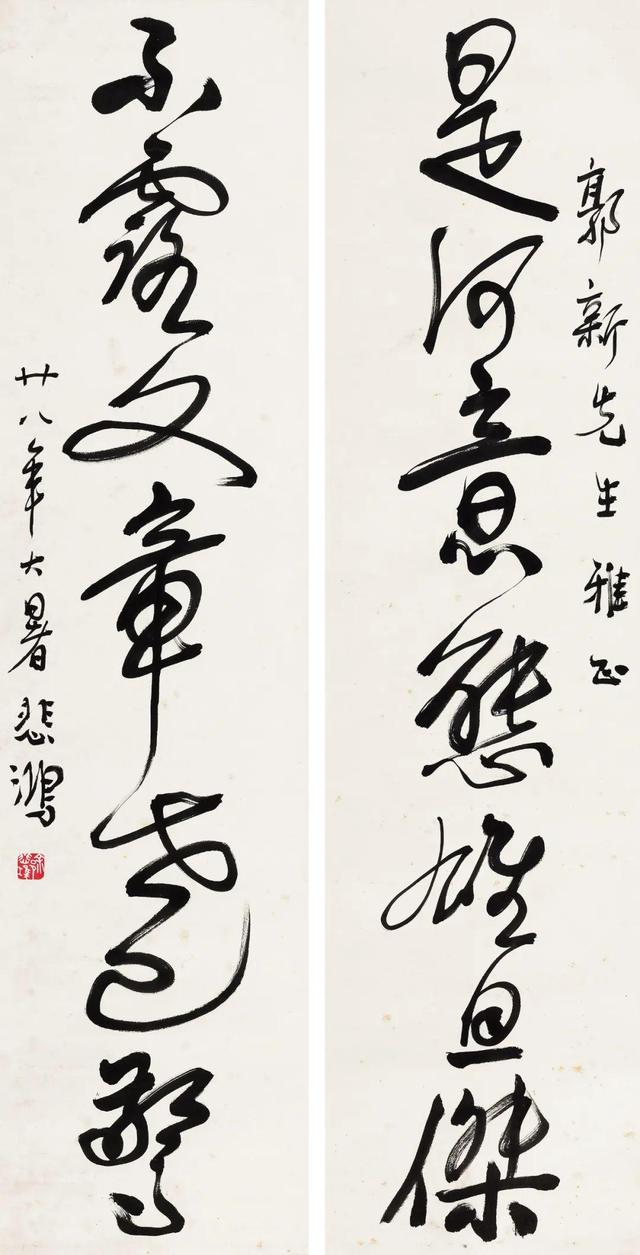 郭新先生雅正
是何意態雄且傑
不露文章世已驚
廿八年大暑悲鴻